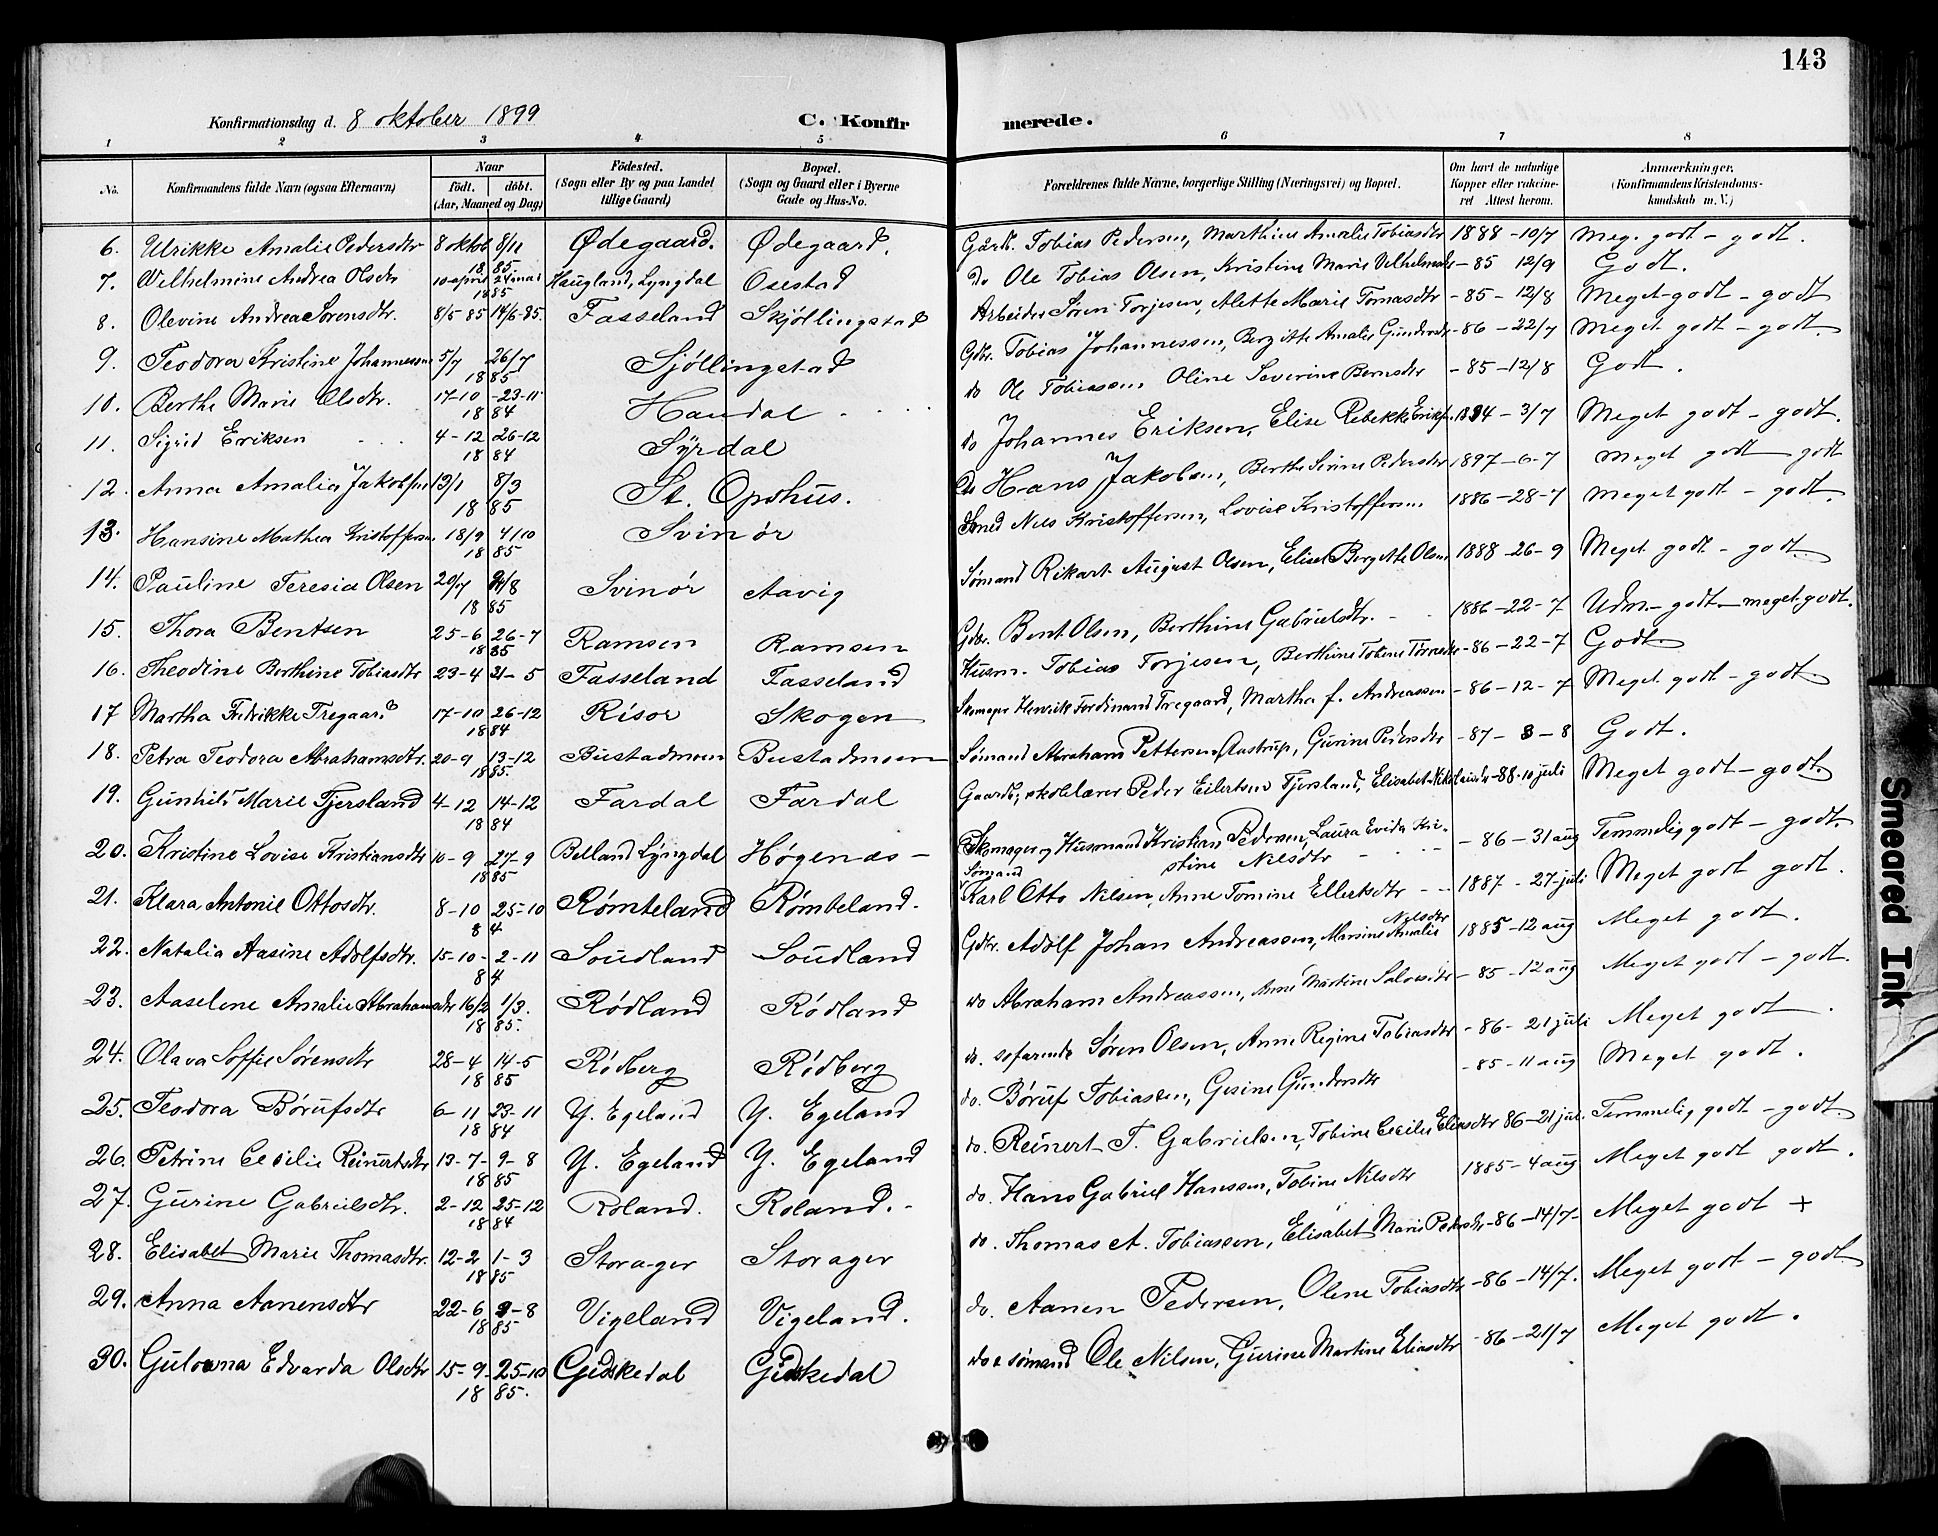 143
Konfirmationsdag d. 8 oktober 1899 C. Konfirmerede.
1 2 3 4 5 6 7 8
No. Konfirmandens fulde Navn (ogsaa Efternavn) Naar födt. döbt. (Aar, Maaned og Dag) Födested. (Sogn eller By og paa Landet tillige Gaard) Bopæl. (Sogn og Gaard eller i Byerne Gade og Hus-No. Forældrenes fulde Navne, borgerlige Stilling (Næringsvei) og Bopæl. Om havt de naturlige Kopper eller vakcineret Attest herom. Anmerkninger. (Konfirmandens Kristendomskundskab m. V.)
6. Ulrikke Amalie Pedersdtr 8 oktob 8/11 1885 Ødegaard. Ødegaard. Gdbr. Tobias Pedersen, Marthine Amalie Tobiasdtr 1888-10/7 Meg. godt - godt.
7. Wilhelmine Andrea Olsdtr 10 april 24 mai 1885 Haugland, Lyngdal Osestad do Ole Tobias Olsen, Kristine Marie Vilhelmsdtr -85 12/9 Godt.
8. Olevine Andrea Sørensdtr. 8/5 85 14/6-85. Fasseland Skjöllingstad Arbeider Sören Torjesen, Alette Marie Tomasdtr -85-12/8 Meget godt - godt
9. Teodora Kristine Johannessen 5/7 26/7 1885 Sjöllingstad Gdbr. Tobias Johannessen, Bergitte Amalie Gundersdtr -86-22/7 Meget godt - godt.
10. Berthe Marie Olsdtr. 17-10 -23-11 1884 Haudal do Ole Tobiassen Oline Severine Berntsdtr -85-12/8 Godt.
11. Sigrid Eriksen 4-12 26-12 1884 Syrdal do Johannes Eriksen, Elise Rebekke Eriksen. 1894-3/7 Meget godt - godt.
12. Anna Amalia Jakobsen 13/1 8/3 1885 St. Opsthus. do Hans Jakobsen, Berthe Sirine Pedersdtr 1897-6-7 Meget godt godt
13. Hansine Mathea Kristoffersen 18/9 4/10 1885 Svinør Smed Nils Kristoffersen, Lovise Kristoffersen 1886-28-7 Meget godt - godt.
14. Pauline Teresia Olsen 20/7 /8 1885 Svinör Aavig Sømand Rikart August Olsen, Elise Bergitte Olsen 1888-26-9 Meget godt - godt.
15. Thora Bentsen 25-6 26-7 1885 Ramsen Ramsen Gdbr. Bent Olsen, Berthine Gabrielsdtr. 1886-22-7 Udm.- godt - meget godt.
16. Theodine Berthine Tobiasdtr 23-4 31-5 Fasseland Fasseland Husm. Tobias Torjesen, Berthine Tobine Tomasdtr -86-22-7 Godt
17 Martha Fredrikke Tregaard 17-10 26-12 1884 Risör Skogen Skomager Henrik Ferdinand Tregaard, Martha f. Andreassen -86-12-7 Meget godt - godt
18. Petra Teodora Abrahamsdtr. 20-9 13-12 1885. Bustadmoen Bustadmoen Sømand Abraham Pettersen Aastrup, Gurine Pedersdtr -87-8-8 Godt.
19. Gunhild Marie Fjersland 4-12 14-12 1884 Fardal Fardal Gaardb., skolelærer Peder Eilertsen Fjersland, Elisabet Nikolaisdtr -88-10 juli Meget godt - godt.
20. Kristine Lovise Kristiansdtr 10-9 27-9 1885 Belland Lyngdal Høgenæs - Skomager og Husmand Kristian Pedersen, Laura Evida Kri-
stine Nilsdtr -86-31 aug Temmelig godt - godt.
21. Klara Antonie Ottosdtr. 8-10 25-10 84 Rømteland Rømteland. Sømand Karl Otto Nilsen, Anne Tomine Ellertsdtr 1887-27-juli Meget godt godt.
22. Natalia Aasine Adolfsdtr. 15-10-2-11 84 Soudland Soudland Gdbr. Adolf Johan Andreassen, Marsine Amalie Nilsdtr 1885-12 aug Meget godt.
23. Aaselene Amalie Abrahamsdtr 16/2 1/3. 1885. Rödland Rödland do Abraham Andreassen, Anne Martine Salvesdtr -85-12 aug Meget godt - godt.
24. Olava Soffie Sørensdtr 28-4 14-5 1885 Rödberg Rödberg do. sofarende Søren Olsen, Anne Regine Tobiasdtr -86-21 juli Meget godt.
25. Teodora Börufsdtr 6-11 23-11 1884 Y. Egeland Y. Egeland do. Böruf Tobiassen, Gesine Gundersdtr -85-11 aug Meget godt.
26. Petrine Cecilie Reinertsdtr 13-7-9-8 1885 Y. Egeland Y. Egeland do. Reinert T. Gabrielsen, Tobine Cecilie Eliasdtr 86-21 juli. Temmelig godt - godt.
27. Gurine Gabrielsdtr. 2-12 25-12 1884 Roland. Roland. do. Hans Gabriel Hanssen, Tobine Nilsdtr 1885-4 aug Meget godt godt.
28. Elisabet Marie Thomasdtr. 12-2 1-3 1885 Storager Storager do. Thomas A. Tobiassen, Elisabet Marie Pedersdtr -86-14/7- Meget godt +
29. Anna Aanensdtr 22-6 9-8 1885 Vigeland Vigeland. do. Aanen Pedersen, Olene Tobiasdtr -86-14/7. Meget godt - godt
30. Gulowna Edvarda Olsdtr 15-9-25-10 1885. Gidskedal Gidskedal do & sømand Ole Nilsen, Gurine Martine Eliasdtr -86-21/7 Meget godt.
Smeared Ink